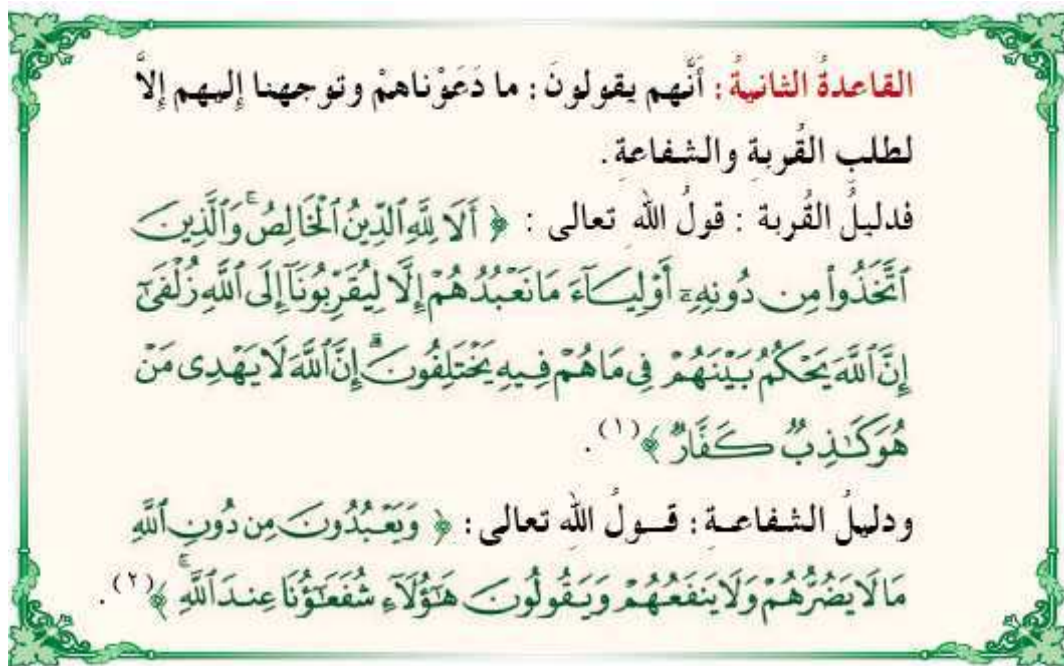 القاعدةُ الثانيةُ : أَنَّهم يقولونَ : ما دَعَوْناهمْ وتوجهنا إليهم إلاَّ
لطلبِ القُربةِ والشفاعةِ .
فدليلُ القُربة : قولُ اللهِ تعالى : ﴿ أَلَا لِلَّهِ ٱلدِّينُ ٱلْخَالِصُ ۚ وَٱلَّذِينَ
ٱتَّخَذُوا۟ مِن دُونِهِۦٓ أَوْلِيَآءَ مَا نَعْبُدُهُمْ إِلَّا لِيُقَرِّبُونَآ إِلَى ٱللَّهِ زُلْفَىٰٓ
إِنَّ ٱللَّهَ يَحْكُمُ بَيْنَهُمْ فِى مَا هُمْ فِيهِ يَخْتَلِفُونَ ۗ إِنَّ ٱللَّهَ لَا يَهْدِى مَنْ
هُوَ كَـٰذِبٌ كَفَّارٌ ﴾(١) .
ودليلُ الشفاعـة : قـولُ الله تعالى : ﴿ وَيَعْبُدُونَ مِن دُونِ ٱللَّهِ
مَا لَا يَضُرُّهُمْ وَلَا يَنفَعُهُمْ وَيَقُولُونَ هَـٰٓؤُلَآءِ شُفَعَـٰٓؤُنَا عِندَ ٱللَّهِ ۚ ﴾(٢) .